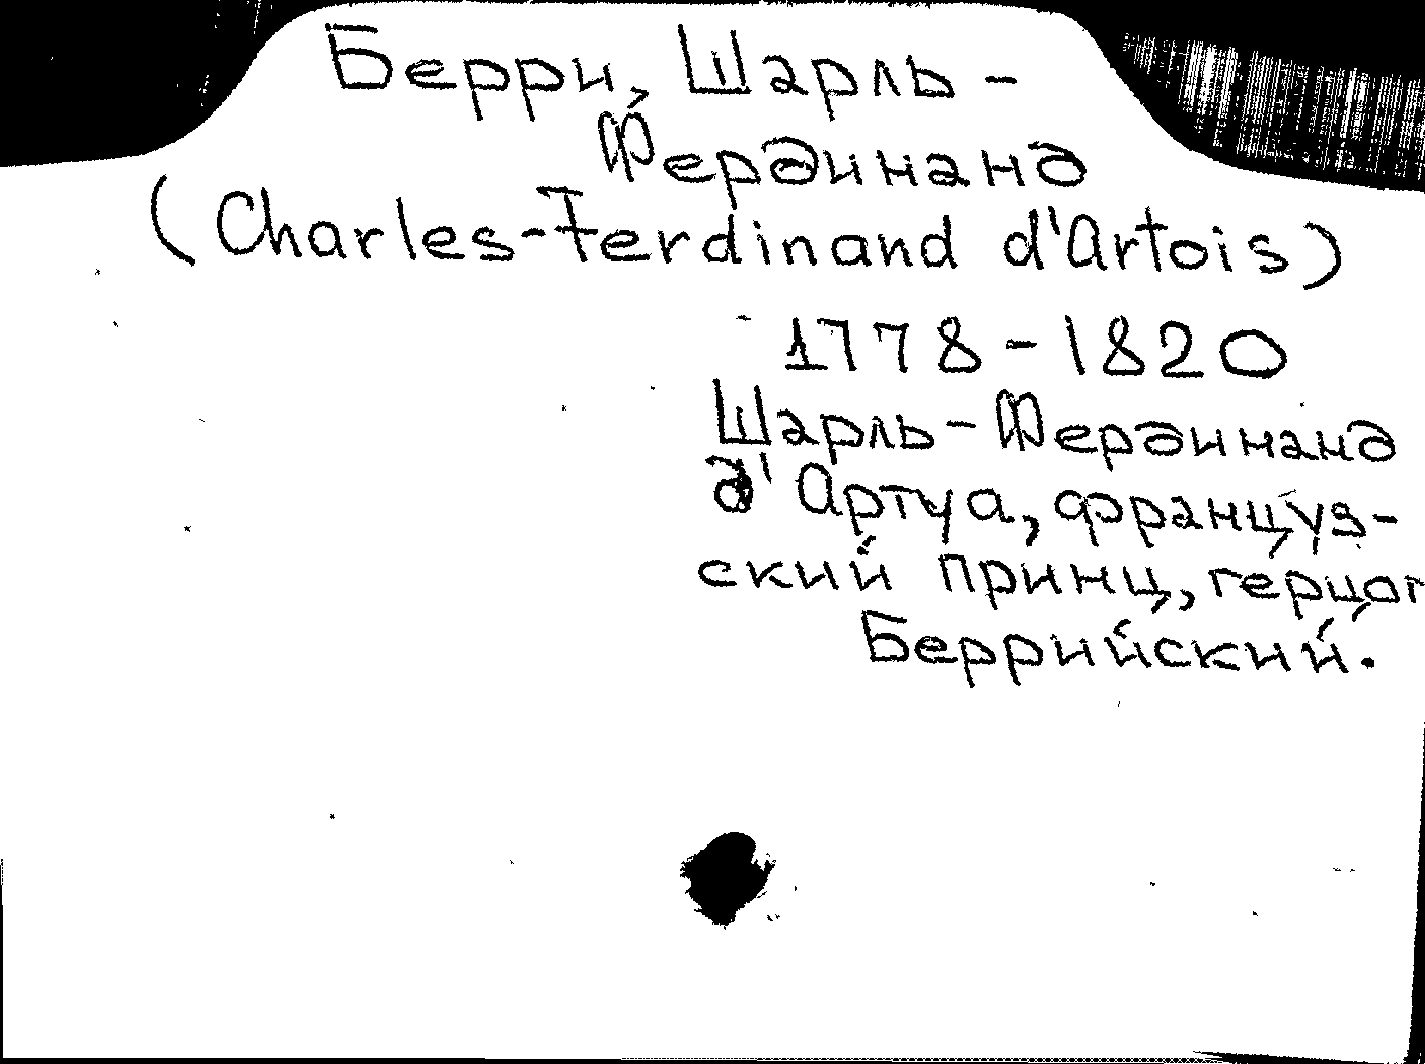 Берри, Шарль-
Фердинанд
(Charles-Ferdinand d'Artois)
1778-1820
Шарль-Фердинанд
д'Артуа, француз-
ский принц, герцог
Беррийский.